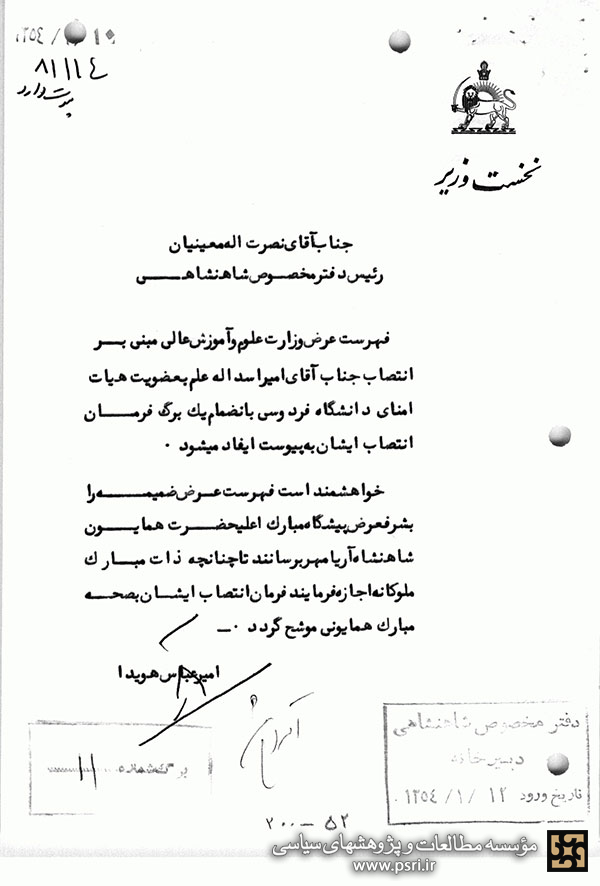 ۸۱/۱۱۴
پیوست دارد
نخست وزیر
جناب آقای نصرت اله معینیان
رئیس دفتر مخصوص شاهنشاهی
فهرست عرض وزارت علوم و آموزش عالی مبنی بر
انتصاب جناب آقای امیر اسد اله علم بعضویت هیات
امنای دانشگاه فردوسی بانضمام یک برگ فرمان
انتصاب ایشان به پیوست ایفاد میشود ۰
خواهشمند است فهرست عرض ضمیمه را
بشرفعرض پیشگاه مبارک اعلیحضرت همایون
شاهنشاه آریامهر برسانند تا چنانچه ذات مبارک
ملوکانه اجازه فرمایند فرمان انتصاب ایشان بصحه
مبارک همایونی موشح گردد ۰ــ
امیر عباس هویدا
دفتر مخصوص شاهنشاهی
دبیرخانه
تاریخ ورود ۱۲ /۱/ ۱۳۵۴
برگ شماره ۱۱
۵۲ – ۲۰۰
مؤسسه مطالعات و پژوهشهای سیاسی
www.psri.ir